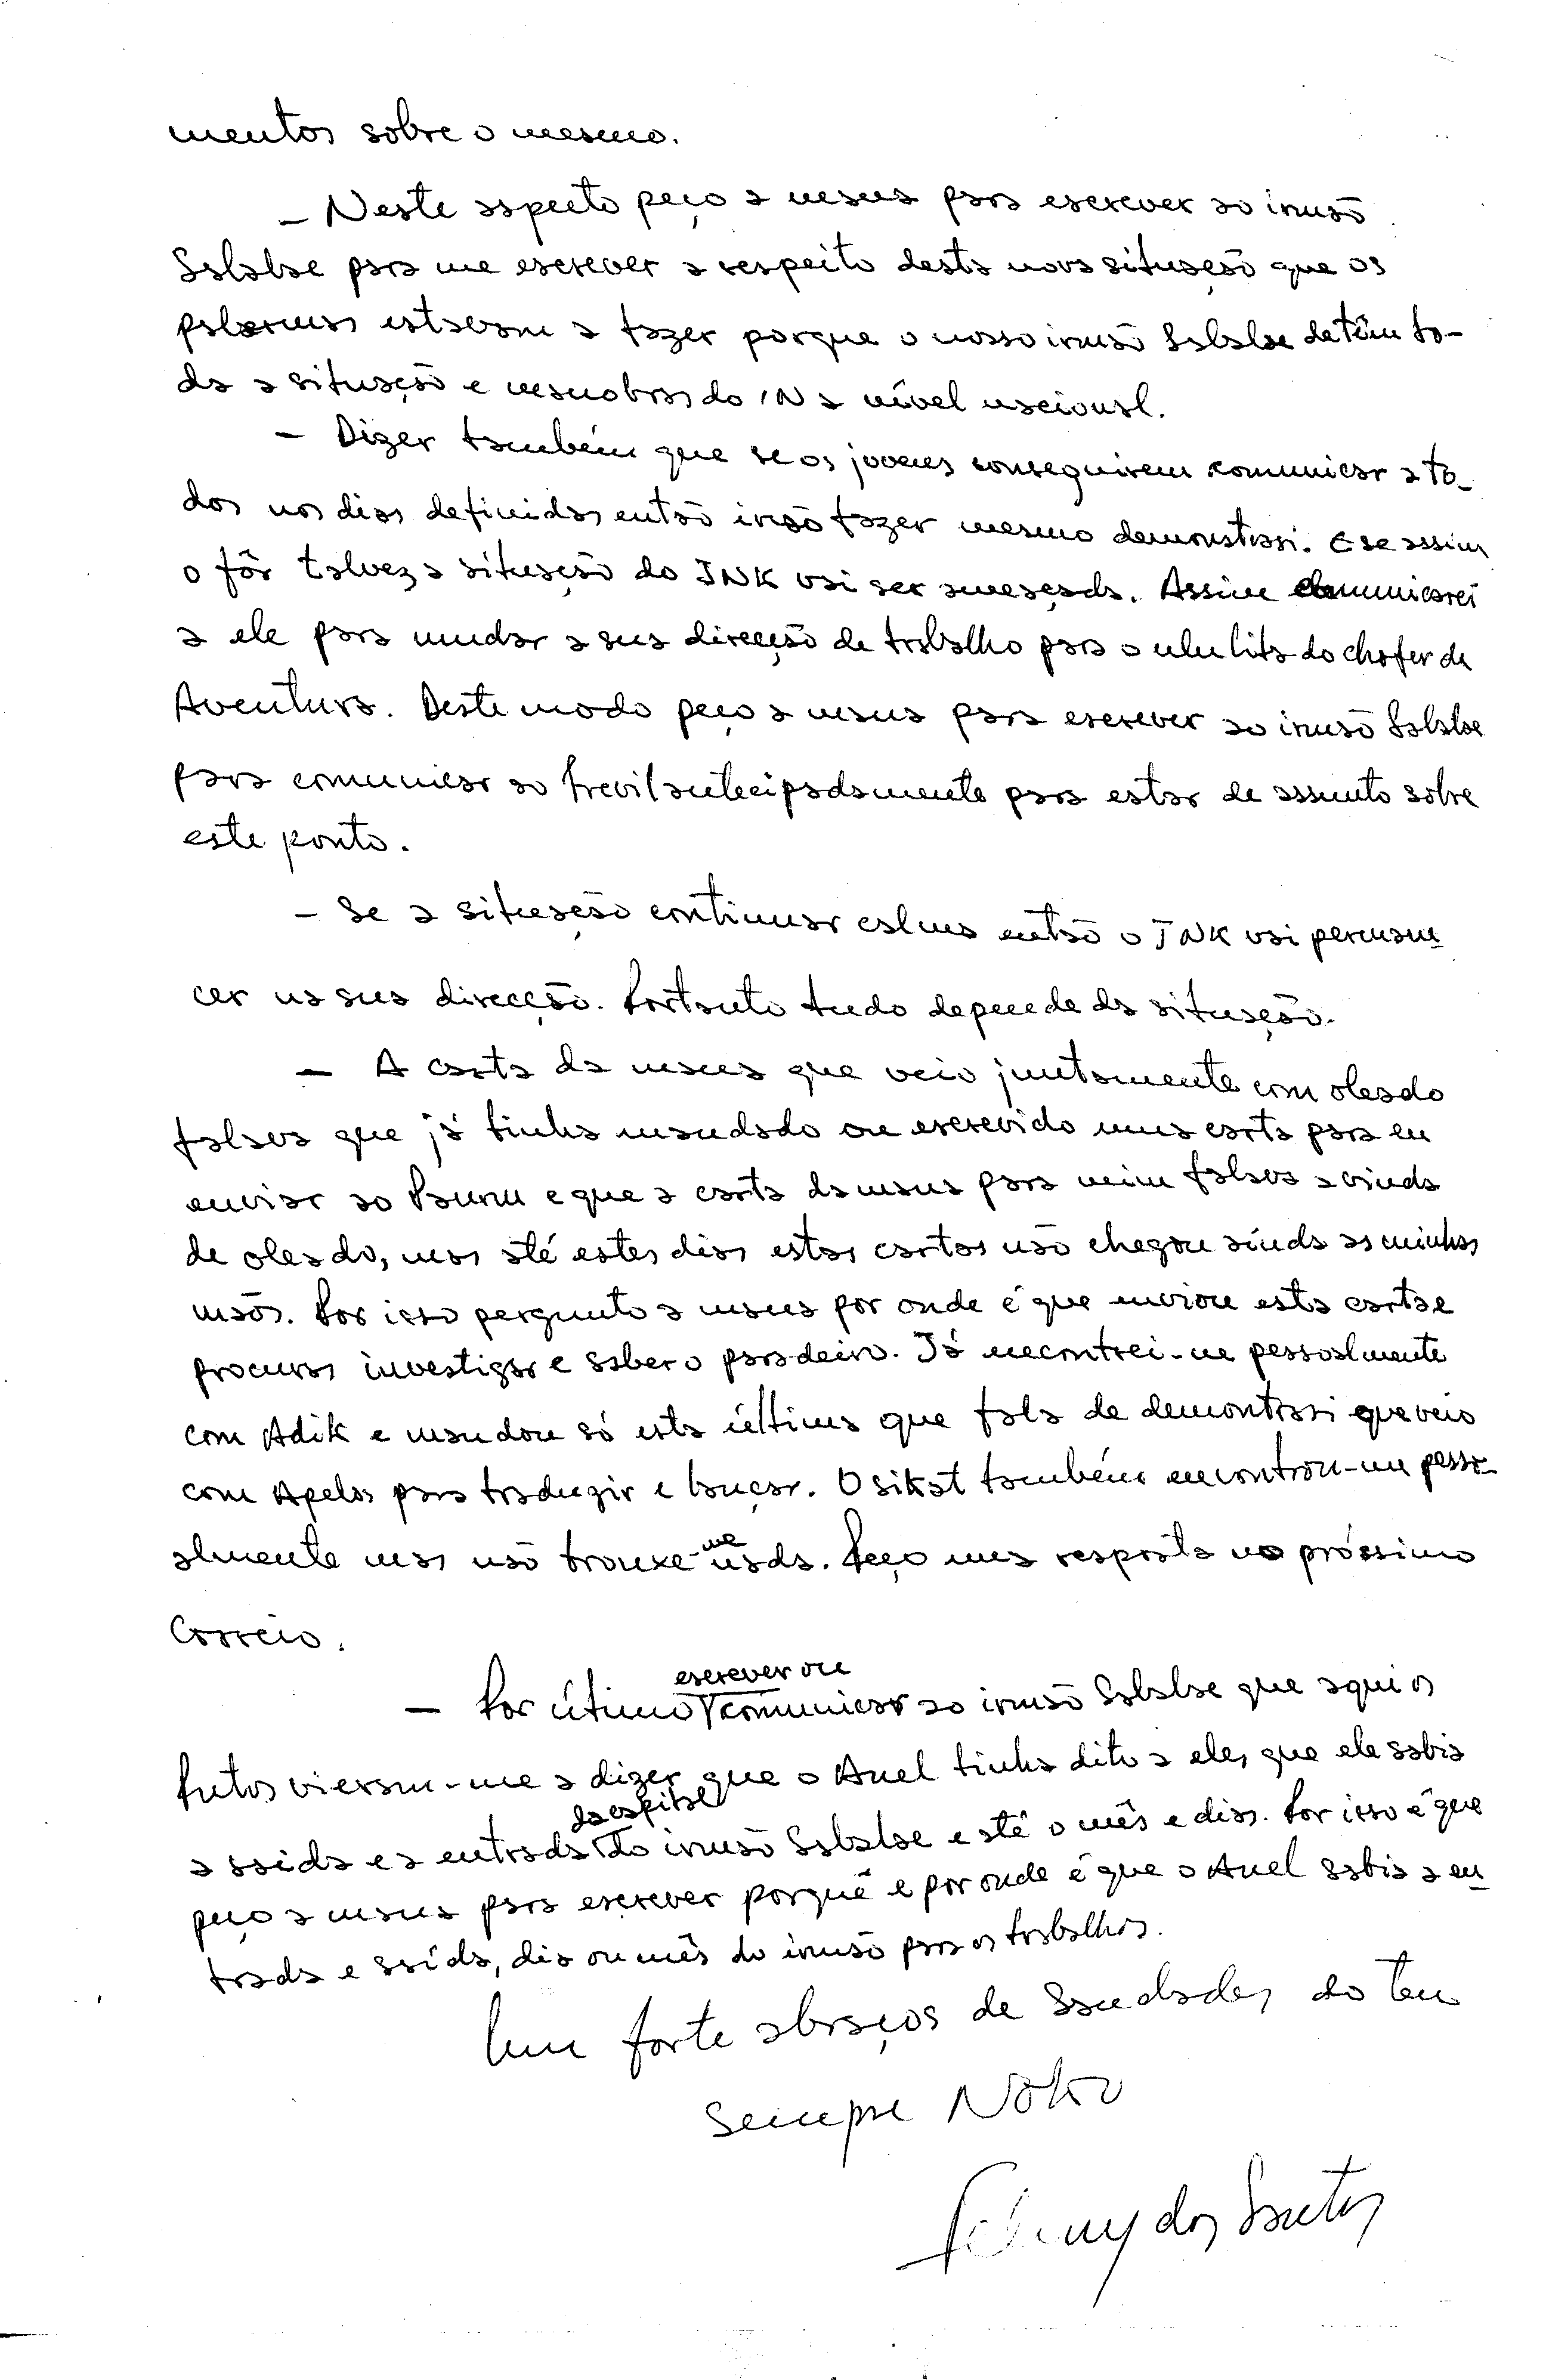 mentos sobre o mesmo.
- Neste aspecto peço a mana para escrever ao irmão
Sabalae para me escrever a respeito desta nova situação que os
estavam a fazer porque o nosso irmão Sabalae detêm to-
da a situação e manobras do IN a nível nacional.
- Dizer também que se os jovenes conseguirem comunicar a to-
dos nos dias definidos então irão fazer mesmo demonstrasi. E se assim
o fôr talvez a situação do JNK vai ser ameaçada. Assim comunicarei
a ele para mudar a sua direcção de trabalho para o ulu lita do chofer de
Aventura. Deste modo peço a mana para escrever ao irmão Sabalae
para comunicar ao antecipadamente para estar de assunto sobre
este ponto.
- Se a situação continuar calma então o JNK vai permane
cer na sua direcção. Portanto tudo depende da situação.
- A carta da mana que veio juntamente com oleado
falava que já tinha mandado ou escrevido uma carta para eu
enviar ao e que a carta da mana para mim falava a vinda
de oleado, mas até estes dias estas cartas não chegou ainda as minhas
mãos. Por isso pergunto a mana por onde é que enviou esta carta e
procuras investigar e saber o paradeiro. Já encontrei-me pessoalmente
com Adik e mandou só esta última que fala de demontrasi que veio
com Apelos para traduzir e lançar. O sikat também encontrou-me pesso-
almente mas não trouxe-me nada. Peço uma resposta no próssimo
Correio.
- Por útimo escrever ou comunicar ao irmão Sabalae que aqui os
Putos vieram-me a dizer que o Anel tinha dito a eles que ele sabia
a saida e a entrada da capital do irmão Sabalae e até o mês e dias. Por isso é que
peço a mana para escrever porquê e por onde é que o Anel sabia a en
trada e saída, dia ou mês do irmão para os trabalhos.
Um forte abraços de saudades do teu
sempre
dos Santos